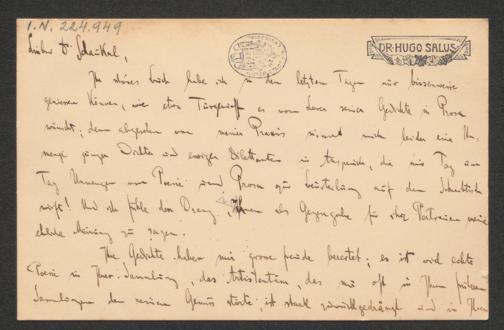 I.N. 224.949
DR. HUGO SALUS.
Lieber Dr Schaukal,
Ihr schönes Buch habe ich in den letzten Tagen nur bissenweise
geniessen können, wie etwa Turgenieff es vom Leser seiner Gedichte in Prosa
wünscht; denn abgesehen von meiner Praxis nimmt mich leider eine Un-
menge junger Dichter und ewiger Dilettanten in Anspruch, die mir Tag um
Tag Unmengen von Poesie und Prosa zur Beurteilung auf den Schreibtisch
wirft! Und ich fühle den Drang, Ihnen als Gegengabe für Ihr Vertrauen meine
ehrliche Meinung zu sagen.
Ihre Gedichte haben mir grosse Freude bereitet; es ist viel echte
Poesie in Ihrer Sammlung, das Artistentum, das mir oft in Ihren früheren
Sammlungen den reinen Genuss störte, ist stark zurückgedrängt und in Ihren